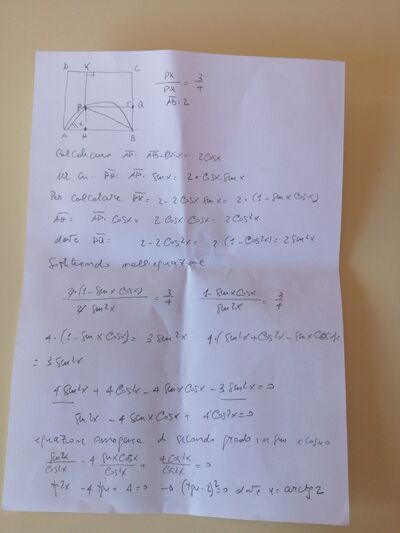 D K C
PK/PQ = 3/4
AB=2
P Q
x
A H B
Calcoliamo AP = AB·cosx = 2cosx
PH = AP·senx = 2·cosx·senx
Per calcolare PK = 2-2cosx·senx = 2·(1-senx cosx)
AH = AP·cosx = 2cosx·cosx = 2cos²x
da cui PQ = 2-2cos²x = 2(1-cos²x) = 2sen²x
nell'equazione
2·(1-senx cosx)/2sen²x = 3/4 1-senx cosx/sen²x = 3/4
4·(1-senx cosx) = 3sen²x 4·(sen²x+cos²x-senx cosx)=
= 3sen²x
4sen²x+4cos²x-4senx cosx-3sen²x=0
sen²x-4senx cosx+4cos²x=0
equazione omogenea di secondo grado in seno e coseno
sen²x/cos²x - 4 senx cosx/cos²x + 4cos²x/cos²x = 0
tg²x-4tgx+4=0 → (tgx-2)²=0 da cui x=arctg2